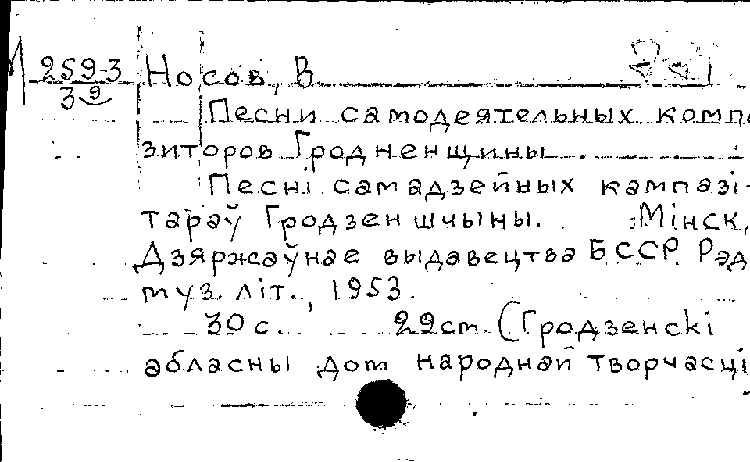 М 259-3 Носов, В.
39
Песни самодеятельных компо
зиторов Гродненщины.
Песні самадзейных кампазі-
тараў Гродзеншчыны. Мінск,
Дзяржаўнае выдавецтва БССР. Рэд.
муз. літ., 1953.
30 с. 29 cm. (Гродзенскі
абласны дом народнай творчасці